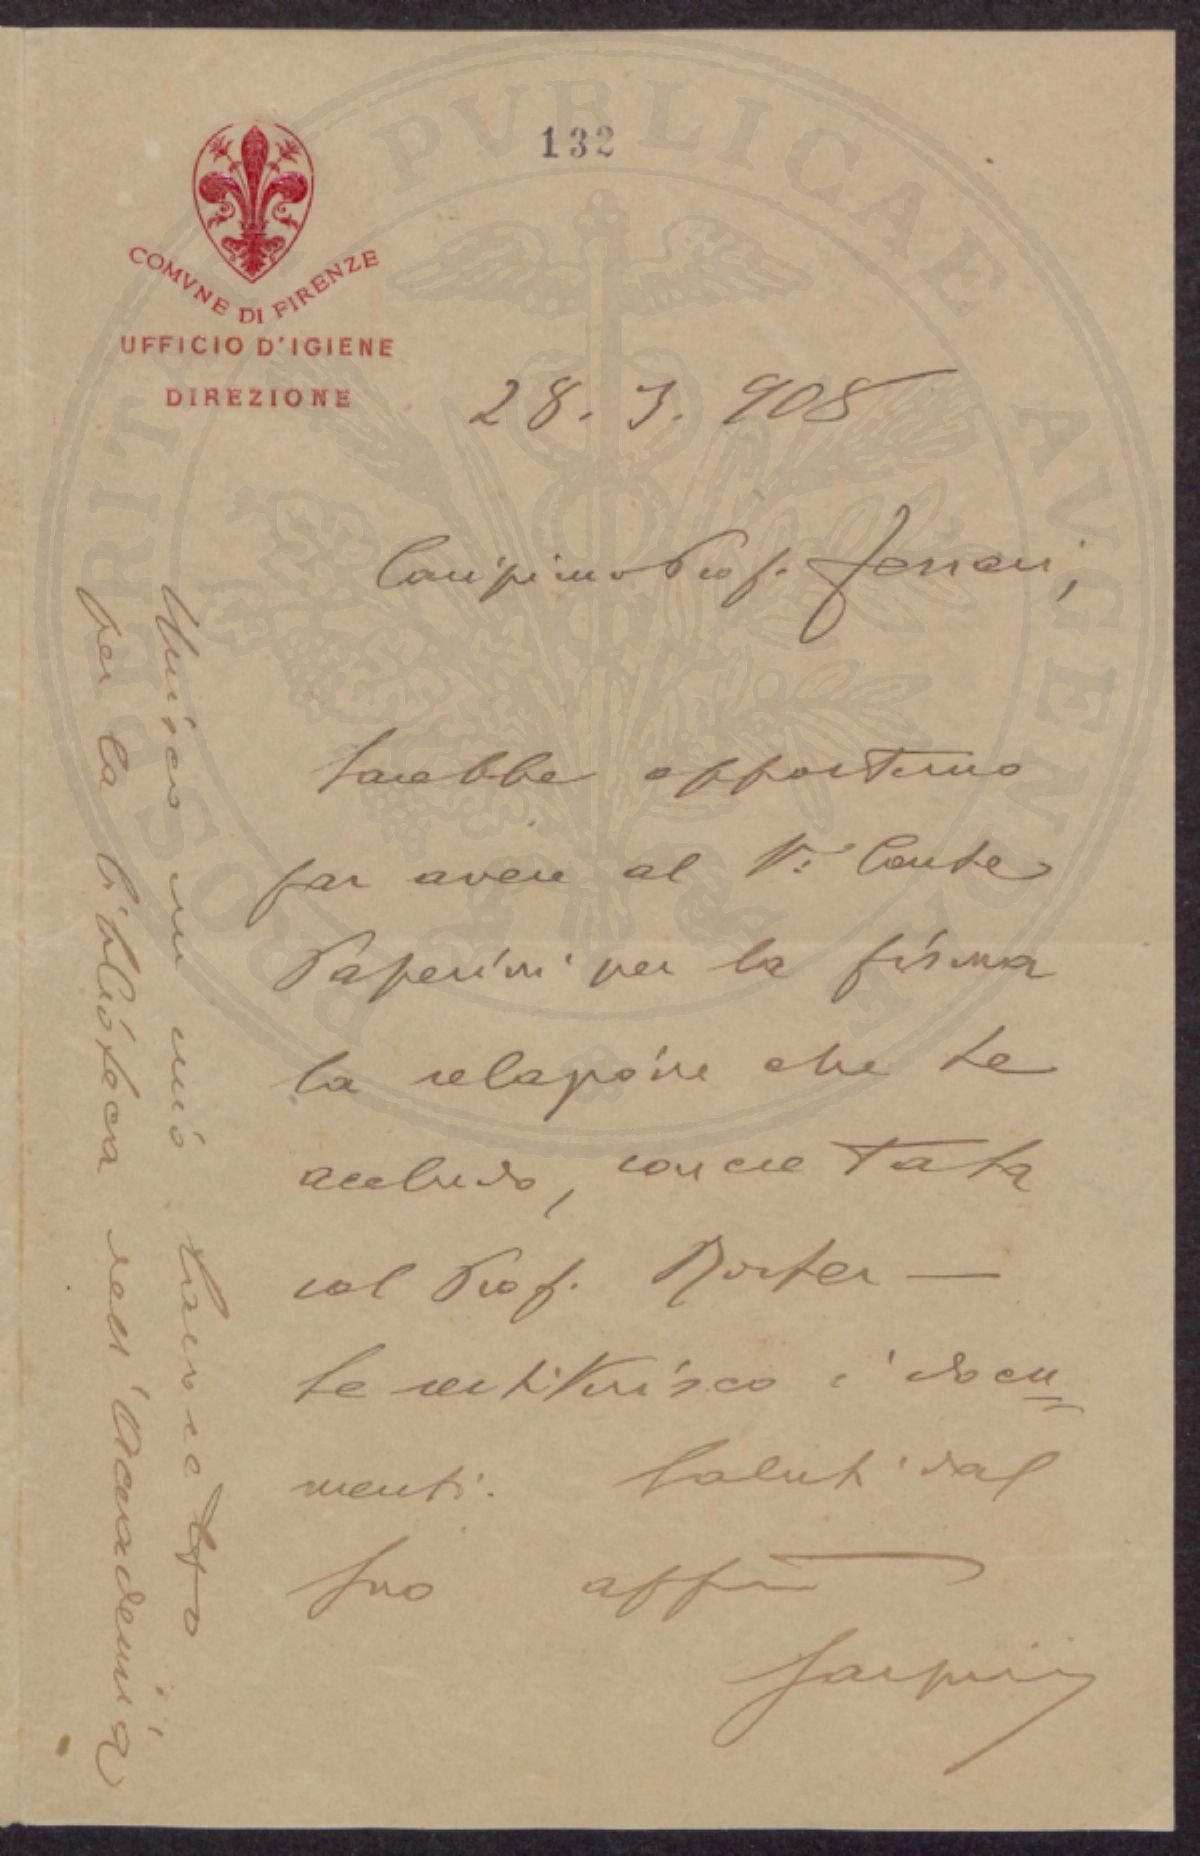 132
COMVNE DI FIRENZE
UFFICIO D'IGIENE
DIREZIONE
28. 3. 908
Carissimo Prof. Ferrari,
Sarebbe opportuno
far avere al V: Conte
Paperini per la firma
la relazione che te
accludo, concretata
col Prof. Roster —
Le restituisco i docu
menti. Saluti dal
suo aff
Unisco un mio lavoretto
per la biblioteca dell'Accademia
PROSPERITATI PVBLICAE AVGENDAE